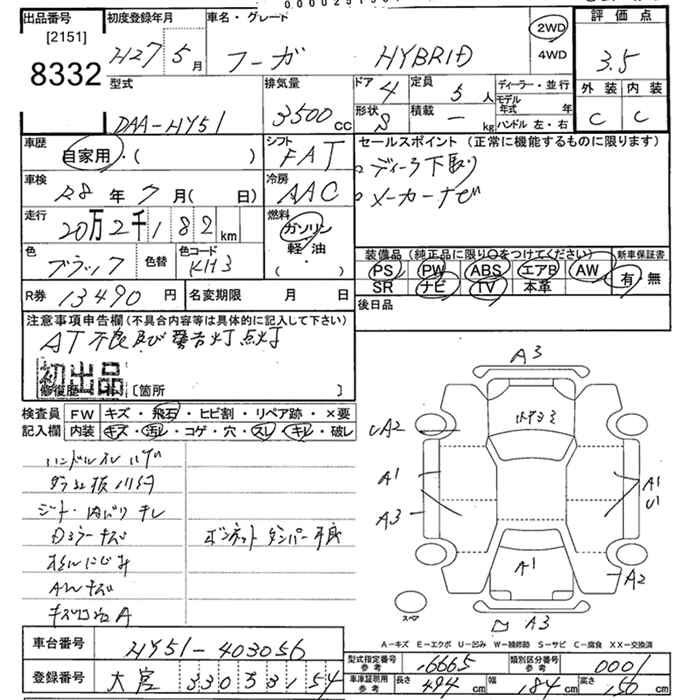 出品番号 初度登録年月 車名・グレード 評価点
[2151] H27年5月 フーガ HYBRID 2WD 4WD 3.5
8332
型式 排気量 ドア 4 定員 5人 ディーラー・並行 外装 内装
DAA-HY51 3500cc 形状 S 積載 － kg モデル年式 年 ハンドル 左・右 C C
車歴 シフト セールスポイント (正常に機能するものに限ります)
自家用・( ) FAT ディーラ下取り
車検 R8年7月(日) 冷房 AAC メーカーナビ
走行 20万2千182km 燃料 ガソリン 軽・油 ( ・ )
色 ブラック 色替 色コード KH3
装備品 (純正品に限り○をつけてください) 新車保証書
PS PW ABS エアB AW 有・無
SR ナビ TV 本革
R券 13490円 名変期限 月 日 後日品
注意事項申告欄(不具合内容等は具体的に記入して下さい)
AT不良及び警告灯点灯
初出品
修復歴 [箇所 ]
検査員 FW キズ・飛石・ヒビ割・リペア跡・×要
記入欄 内装 キズ・汚レ・コゲ・穴・スレ・キレ・破レ
ハンドルスレ
シート・内バリ キレ
ドラーキズ
ボンネットダンパー不良
AWキズ
A3
UA2
A1
A3
A1
U1
A1
A2
スペア
A3
A-キズ E-エクボ U-凹み W-補修跡 S-サビ C-腐食 XX-交換済
車台番号 HY51-403056
型式指定番号 参考 16665 類別区分番号 参考 0001
登録番号 大宮 330 す 3154
車庫証明用 参考 長さ 494cm 幅 184cm 高さ 150cm